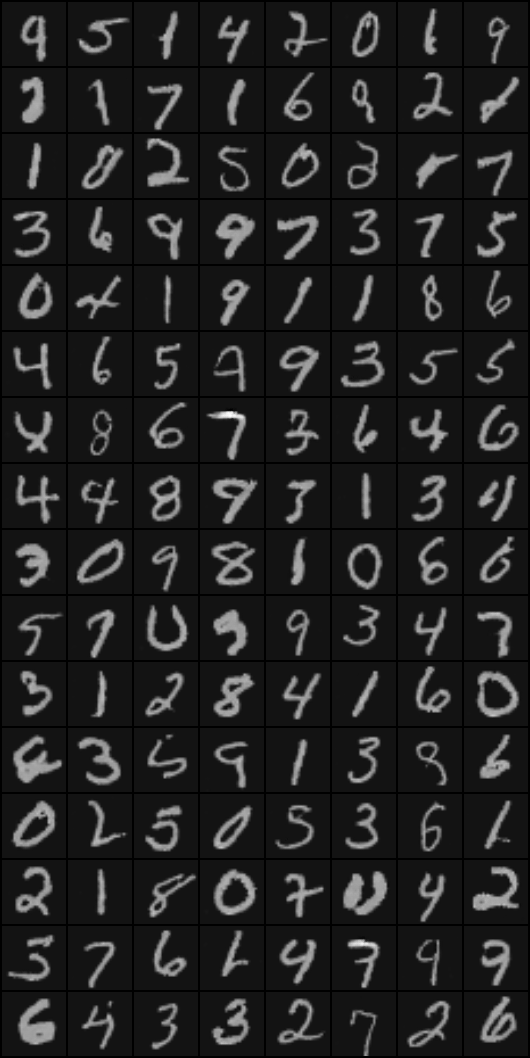 9 5 1 4 2 0 1 9
2 1 7 1 6 9 2 1
1 8 2 5 0 3 7
3 6 9 9 7 3 7 5
0 4 1 9 1 1 8 6
4 6 5 9 9 3 5 5
4 8 6 7 3 6 4 6
4 4 8 9 3 1 3 4
3 0 9 8 1 0 6 6
5 7 0 9 9 3 4 7
3 1 2 8 4 1 6 0
6 3 5 9 1 3 9 6
0 2 5 0 5 3 6 1
2 1 8 0 7 0 4 2
3 7 6 1 4 7 9 9
6 4 3 3 2 7 2 6